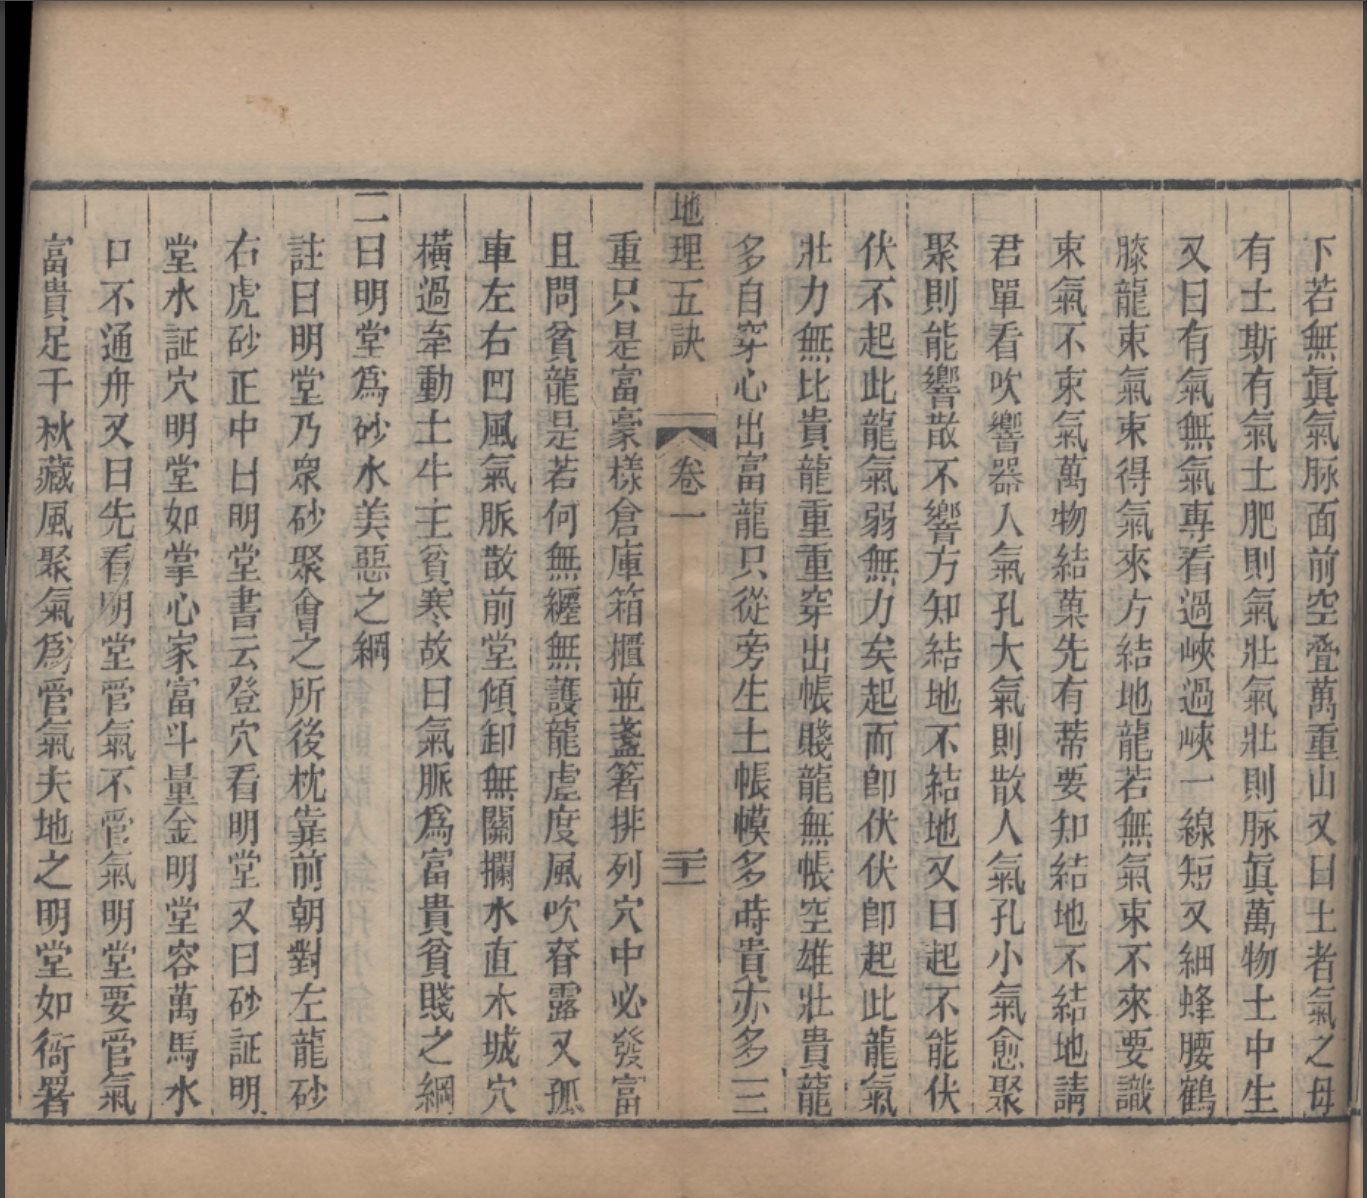 下若無眞氣脉面前空疊萬重山又曰土者氣之母
有土斯有氣土肥則氣壯氣壯則脉眞萬物土中生
又曰有氣無氣專看過峽過峽一線短又細蜂腰鶴
膝龍束氣束得氣來方結地龍若無氣束不來要識
束氣不束氣萬物結菓先有蒂要知結地不結地請
君單看吹響器人氣孔大氣則散人氣孔小氣愈聚
聚則能響散不響方知結地不結地又曰起不能伏
伏不起此龍氣弱無力矣起而卽伏伏卽起此龍氣
壯力無比貴龍重重穿出帳賤龍無帳空雄壯貴龍
多自穿心出富龍只從旁生土帳幙多時貴亦多三
地理五訣
卷一
二十一
重只是富豪樣倉庫箱櫃並盞箸排列穴中必發富
且問貧龍是若何無纒無護龍虛度風吹脊露又孤
車左右凹風氣脈散前堂傾卸無關攔水直木城穴
橫過牽動土牛主貧寒故曰氣脈爲富貴貧賤之綱
二曰明堂爲砂水美惡之綱
註曰明堂乃衆砂聚會之所後枕靠前朝對左龍砂
右虎砂正中曰明堂書云登穴看明堂又曰砂証明
堂水証穴明堂如掌心家富斗量金明堂容萬馬水
口不通舟又曰先看明堂管氣不管氣明堂要管氣
富貴足千秋藏風聚氣爲管氣夫地之明堂如衙署